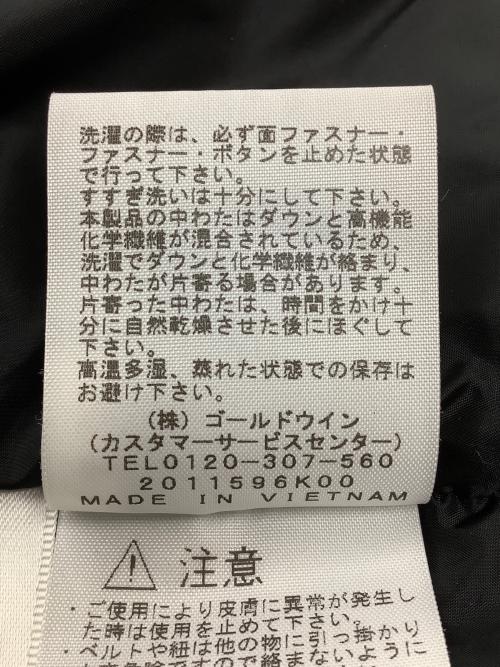 洗濯の際は、必ず面ファスナー・
ファスナー・ボタンを止めた状態
で行って下さい。
すすぎ洗いは十分にして下さい。
本製品の中わたはダウンと高機能
化学繊維が混合されているため、
洗濯でダウンと化学繊維が絡まり、
中わたが片寄る場合があります。
片寄った中わたは、時間をかけ十
分に自然乾燥させた後にほぐして
下さい。
高温多湿、蒸れた状態での保存は
お避け下さい。
(株)ゴールドウイン
(カスタマーサービスセンター)
TEL0120-307-560
2011596K00
MADE IN VIETNAM
注意
・ご使用により皮膚に異常が発生し
た時は使用を止めて下さい。
・ベルトや紐は他の物に引っ掛かり
ますので絡まないように